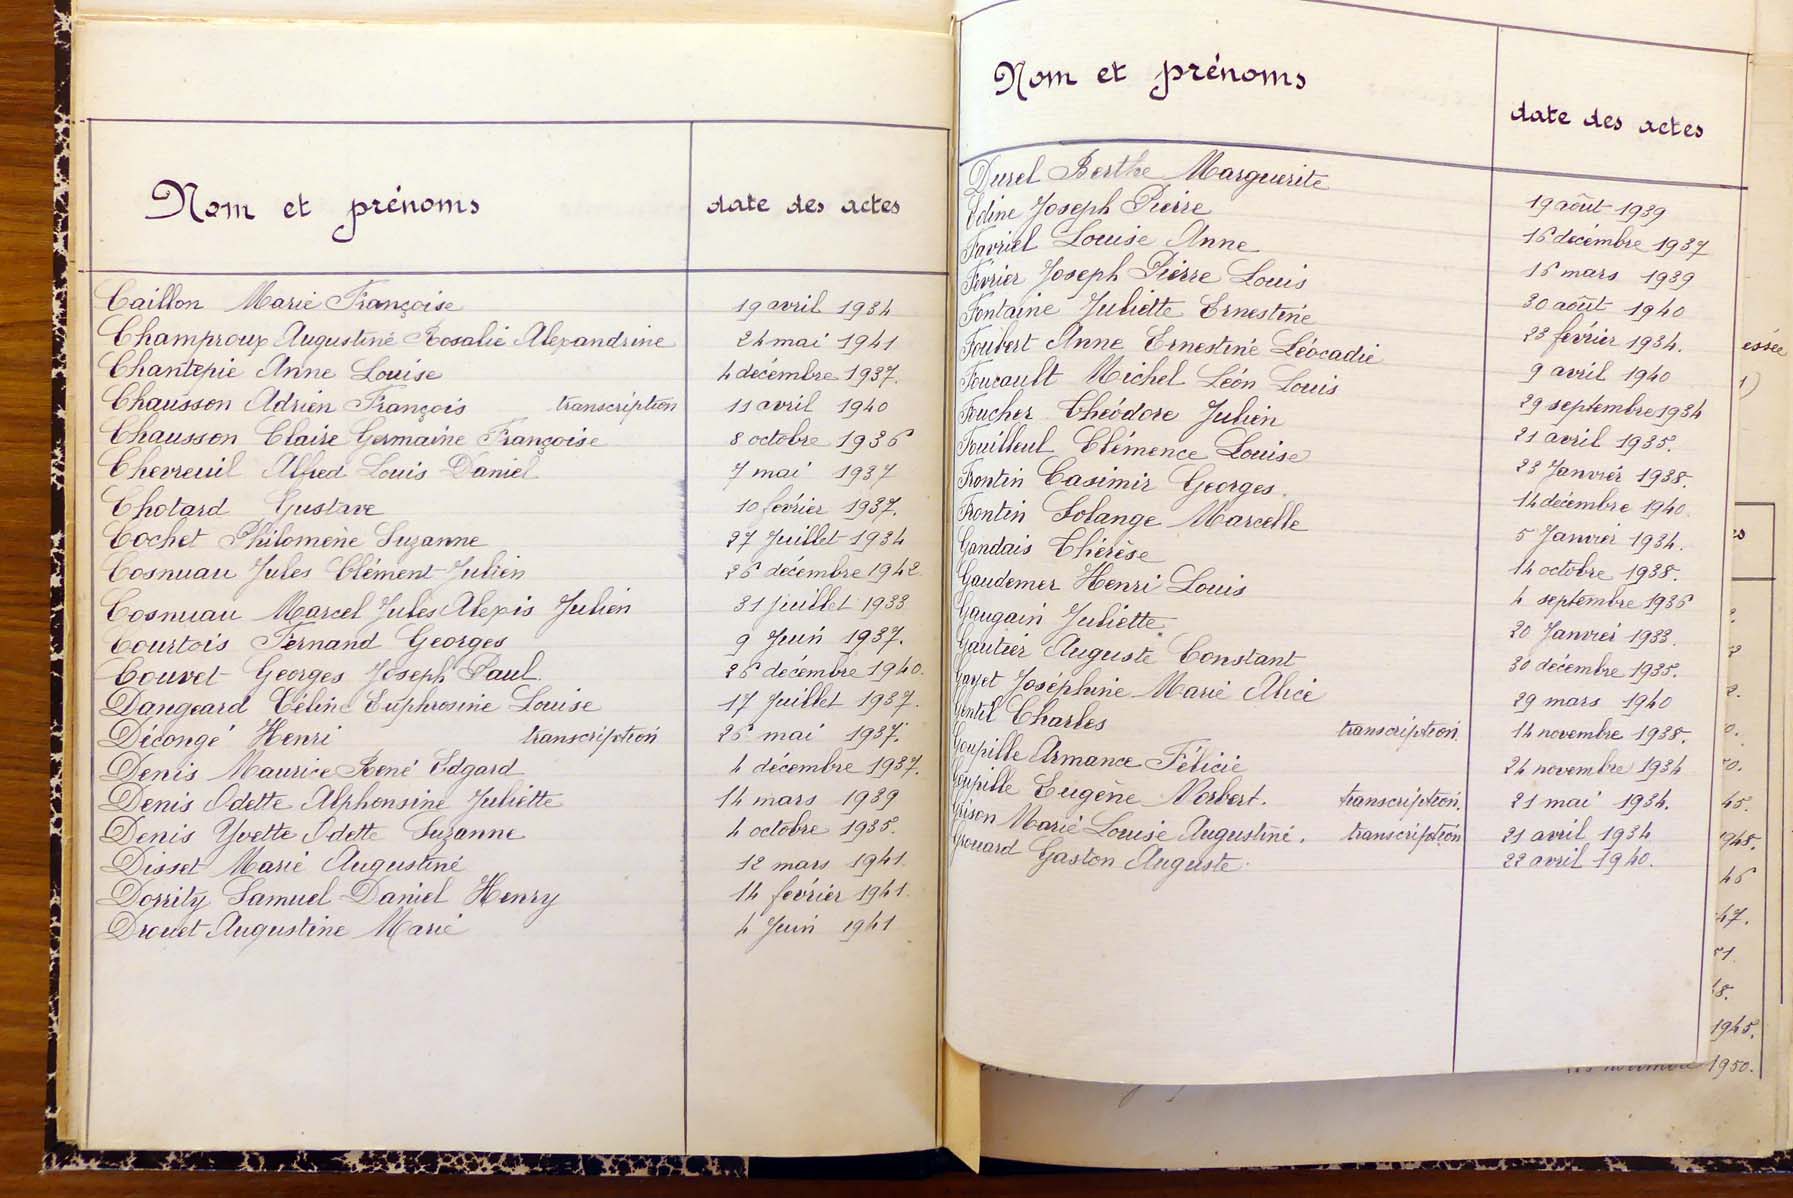 Nom et prénoms date des actes
Caillon Marie Françoise 19 avril 1934
Champroux Augustine Rosalie Alexandrine 24 mai 1941
Chantepie Anne Louise 4 décembre 1937.
Chausson Adrien François transcription 11 avril 1940
Chausson Claire Germaine Françoise 8 octobre 1936
Chevreuil Alfred Louis Daniel 7 mai 1937
Chotard Gustave 10 février 1937.
Cochet Philomène Suzanne 27 Juillet 1934
Cosnuau Jules Clément Julien 26 décembre 1942
Cosnuau Marcel Jules Alexis Julien 31 juillet 1933
Courtois Fernand Georges 9 Juin 1937.
Couvet Georges Joseph Paul. 26 décembre 1940.
Dangeard Céline Euphrosine Louise 17 Juillet 1937.
Décongé Henri transcription 26 mai 1937.
Denis Maurice René Edgard 4 décembre 1937.
Denis Odette Alphonsine Juliette 14 mars 1939
Denis Yvette Odette Suzanne 4 octobre 1935.
Disset Marie Augustine 12 mars 1941.
Dorrity Samuel Daniel Henry 14 fevrier 1941.
Drouet Augustine Marie 4 Juin 1941
Nom et prénoms date des actes
Durel Berthe Marguerite 19 août 1939
Edine Joseph Pierre 16 décembre 1937
Favriel Louise Anne 16 mars 1939
Février Joseph Pierre Louis 30 août 1940
Fontaine Juliette Ernestine 23 février 1934.
Foubert Anne Ernestine Léocadie 9 avril 1940
Foucault Michel Léon Louis 29 septembre 1934
Foucher Théodore Julien 21 avril 1935.
Fouilleul Clémence Louise 23 Janvier 1938.
Frontin Casimir Georges. 14 décembre 1940.
Frontin Solange Marcelle 5 Janvier 1934.
Gandais Thérèse 14 octobre 1938.
Gaudemer Henri Louis 4 septembre 1936
Gaugain Juliette 20 Janvier 1933.
Gautier Auguste Constant 30 décembre 1935.
Gayet Joséphine Marie Alice 29 mars 1940
Gentil Charles transcription. 14 novembre 1938.
Goupille Armance Félicie 24 novembre 1934
Goupille Eugène Norbert. transcription. 21 mai 1934.
Grison Marie Louise Augustine. transcription 21 avril 1934
Grouard Gaston Auguste. 22 avril 1940.
essée
1)
es
45.
1948.
46
47.
1945.
1950.